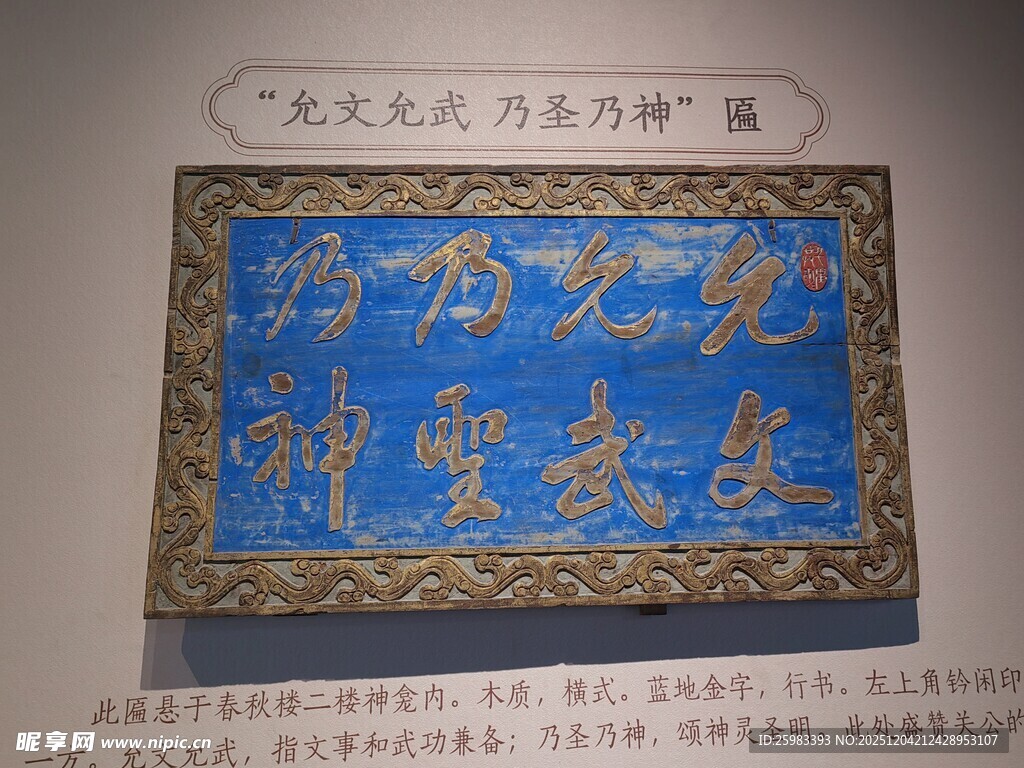 “允文允武 乃圣乃神”匾
允文
允武
乃聖
乃神
此匾悬于春秋楼二楼神龛内。木质，横式。蓝地金字，行书。左上角钤闲印
一方。允文允武，指文事和武功兼备；乃圣乃神，颂神灵圣明。此处盛赞关公的
昵享网 www.nipic.cn
ID:25983393 NO:20251204212428953107